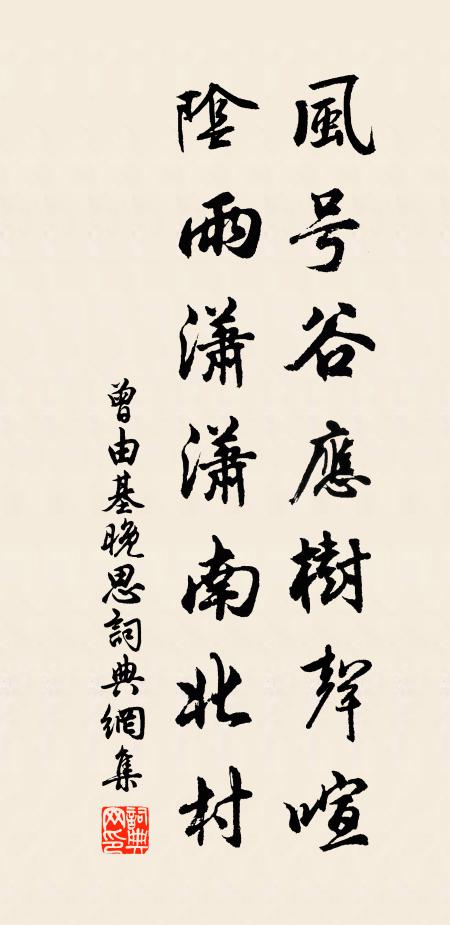 風号谷應樹聲喧
陰雨瀟瀟南北村
曾由基晚思詞典網集
詞典网印